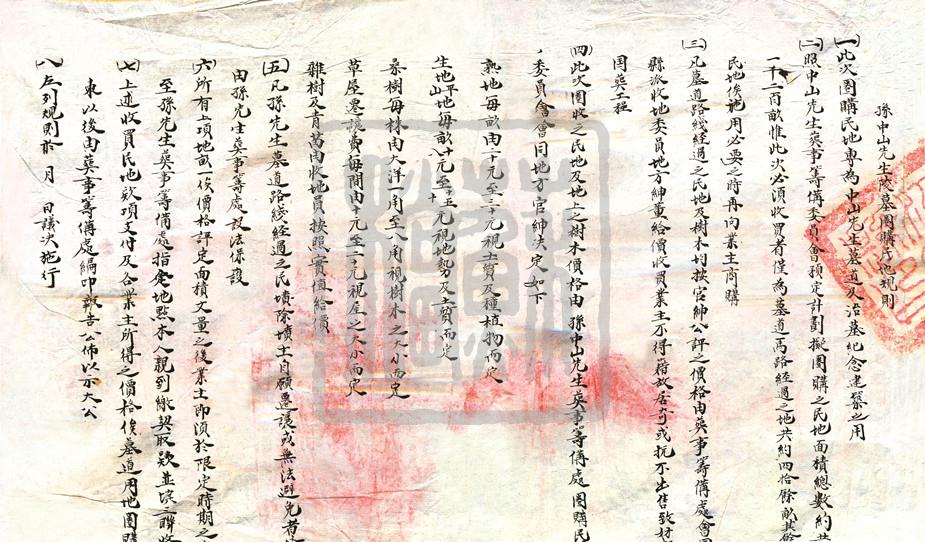 孫中山先生陵墓圈購民地規則
(一)此次圈購民地專為中山先生墓道及沿墓紀念建築之用
(二)照中山先生葬事籌備委員會預定計劃擬圈購之民地面積總數約共
一千二百畝惟此次必須收買者僅為墓道馬路經過之地共約四拾餘畝其餘
民地俟施用必要之時再向業主商購
(三)凡墓道路綫經過之民地及樹木均按官紳公評之價格由葬事籌備處會同
縣派收地委員地方紳董給價收買業主不得藉故居奇或抗不出售致妨
國葬工程
(四)此次圈收之民地及地上之樹木價格由孫中山先生葬事籌備處圈購民
委員會會同地方官紳決定如下
熟地每畝由二十元至三十元視土質及種植物而定
生地平地山地每畝八元至十五元視地勢及土質而定
桑樹每株由大洋一角至八角視樹木之大小而定
草屋遷讓費每間由十元至二十元視屋之大小而定
雜樹及青苗由收地員按照實值給價
(五)凡孫先生墓道路綫經過之民墳除墳主自願遷讓或無法避免者
由孫先生葬事籌處設法保護
(六)所有上項地畝一俟價格評定面積丈量之後業主即須於限定時期之
至孫先生葬事籌備處指定地點本人親到繳契取欵並填三聯收
(七)上述收買民地欵項支付及合業主所得之價格俟墓道用地圈購
束以後由葬事籌備處編印報告公佈以示大公
八 左列規則於 月 日議決施行